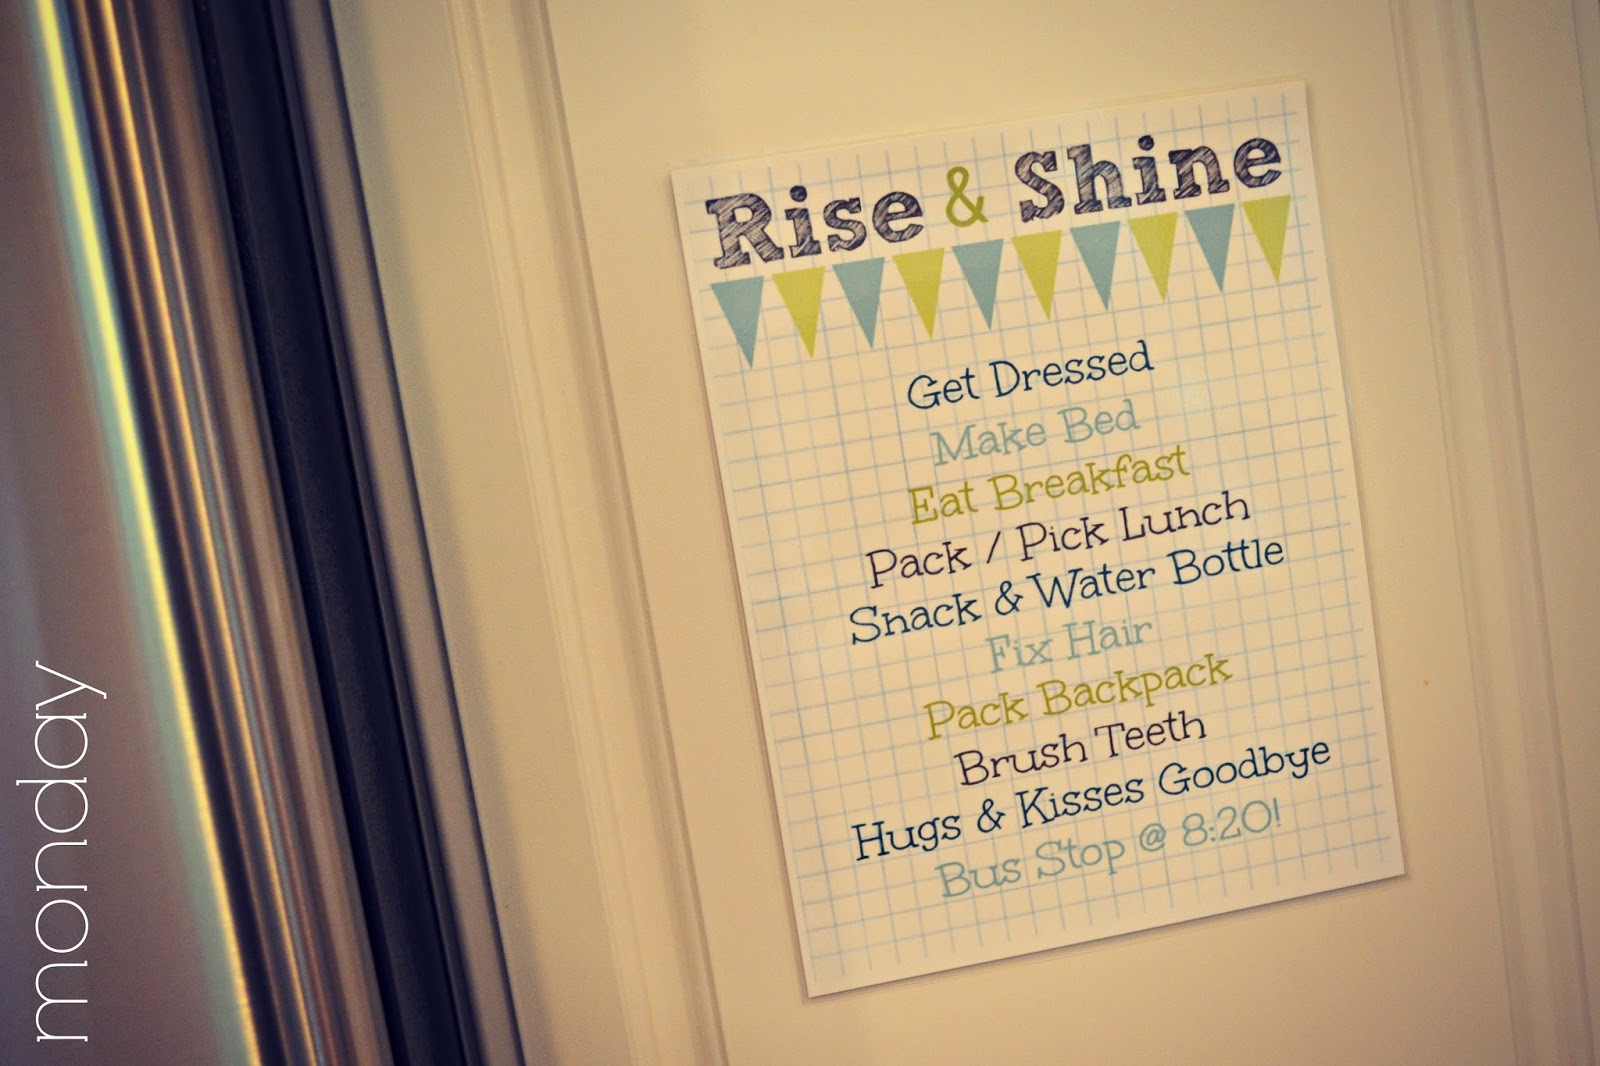 Rise & Shine
Get Dressed
Make Bed
Eat Breakfast
Pack / Pick Lunch
Snack & Water Bottle
Fix Hair
Pack Backpack
Brush Teeth
Hugs & Kisses Goodbye
Bus Stop @ 8:20!
monday